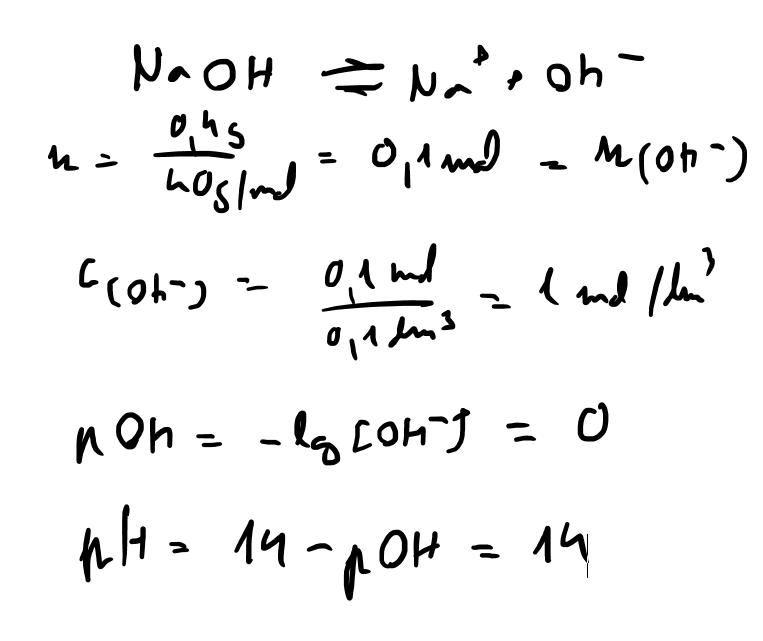 NaOH ⇌ Na⁺ + Oh⁻
n = 0,4g / 40g/mol = 0,1 mol = n(Oh⁻)
c(Oh⁻) = 0,1 mol / 0,1 dm³ = 1 mol/dm³
pOh = -lg[OH⁻] = 0
pH = 14 - pOH = 14